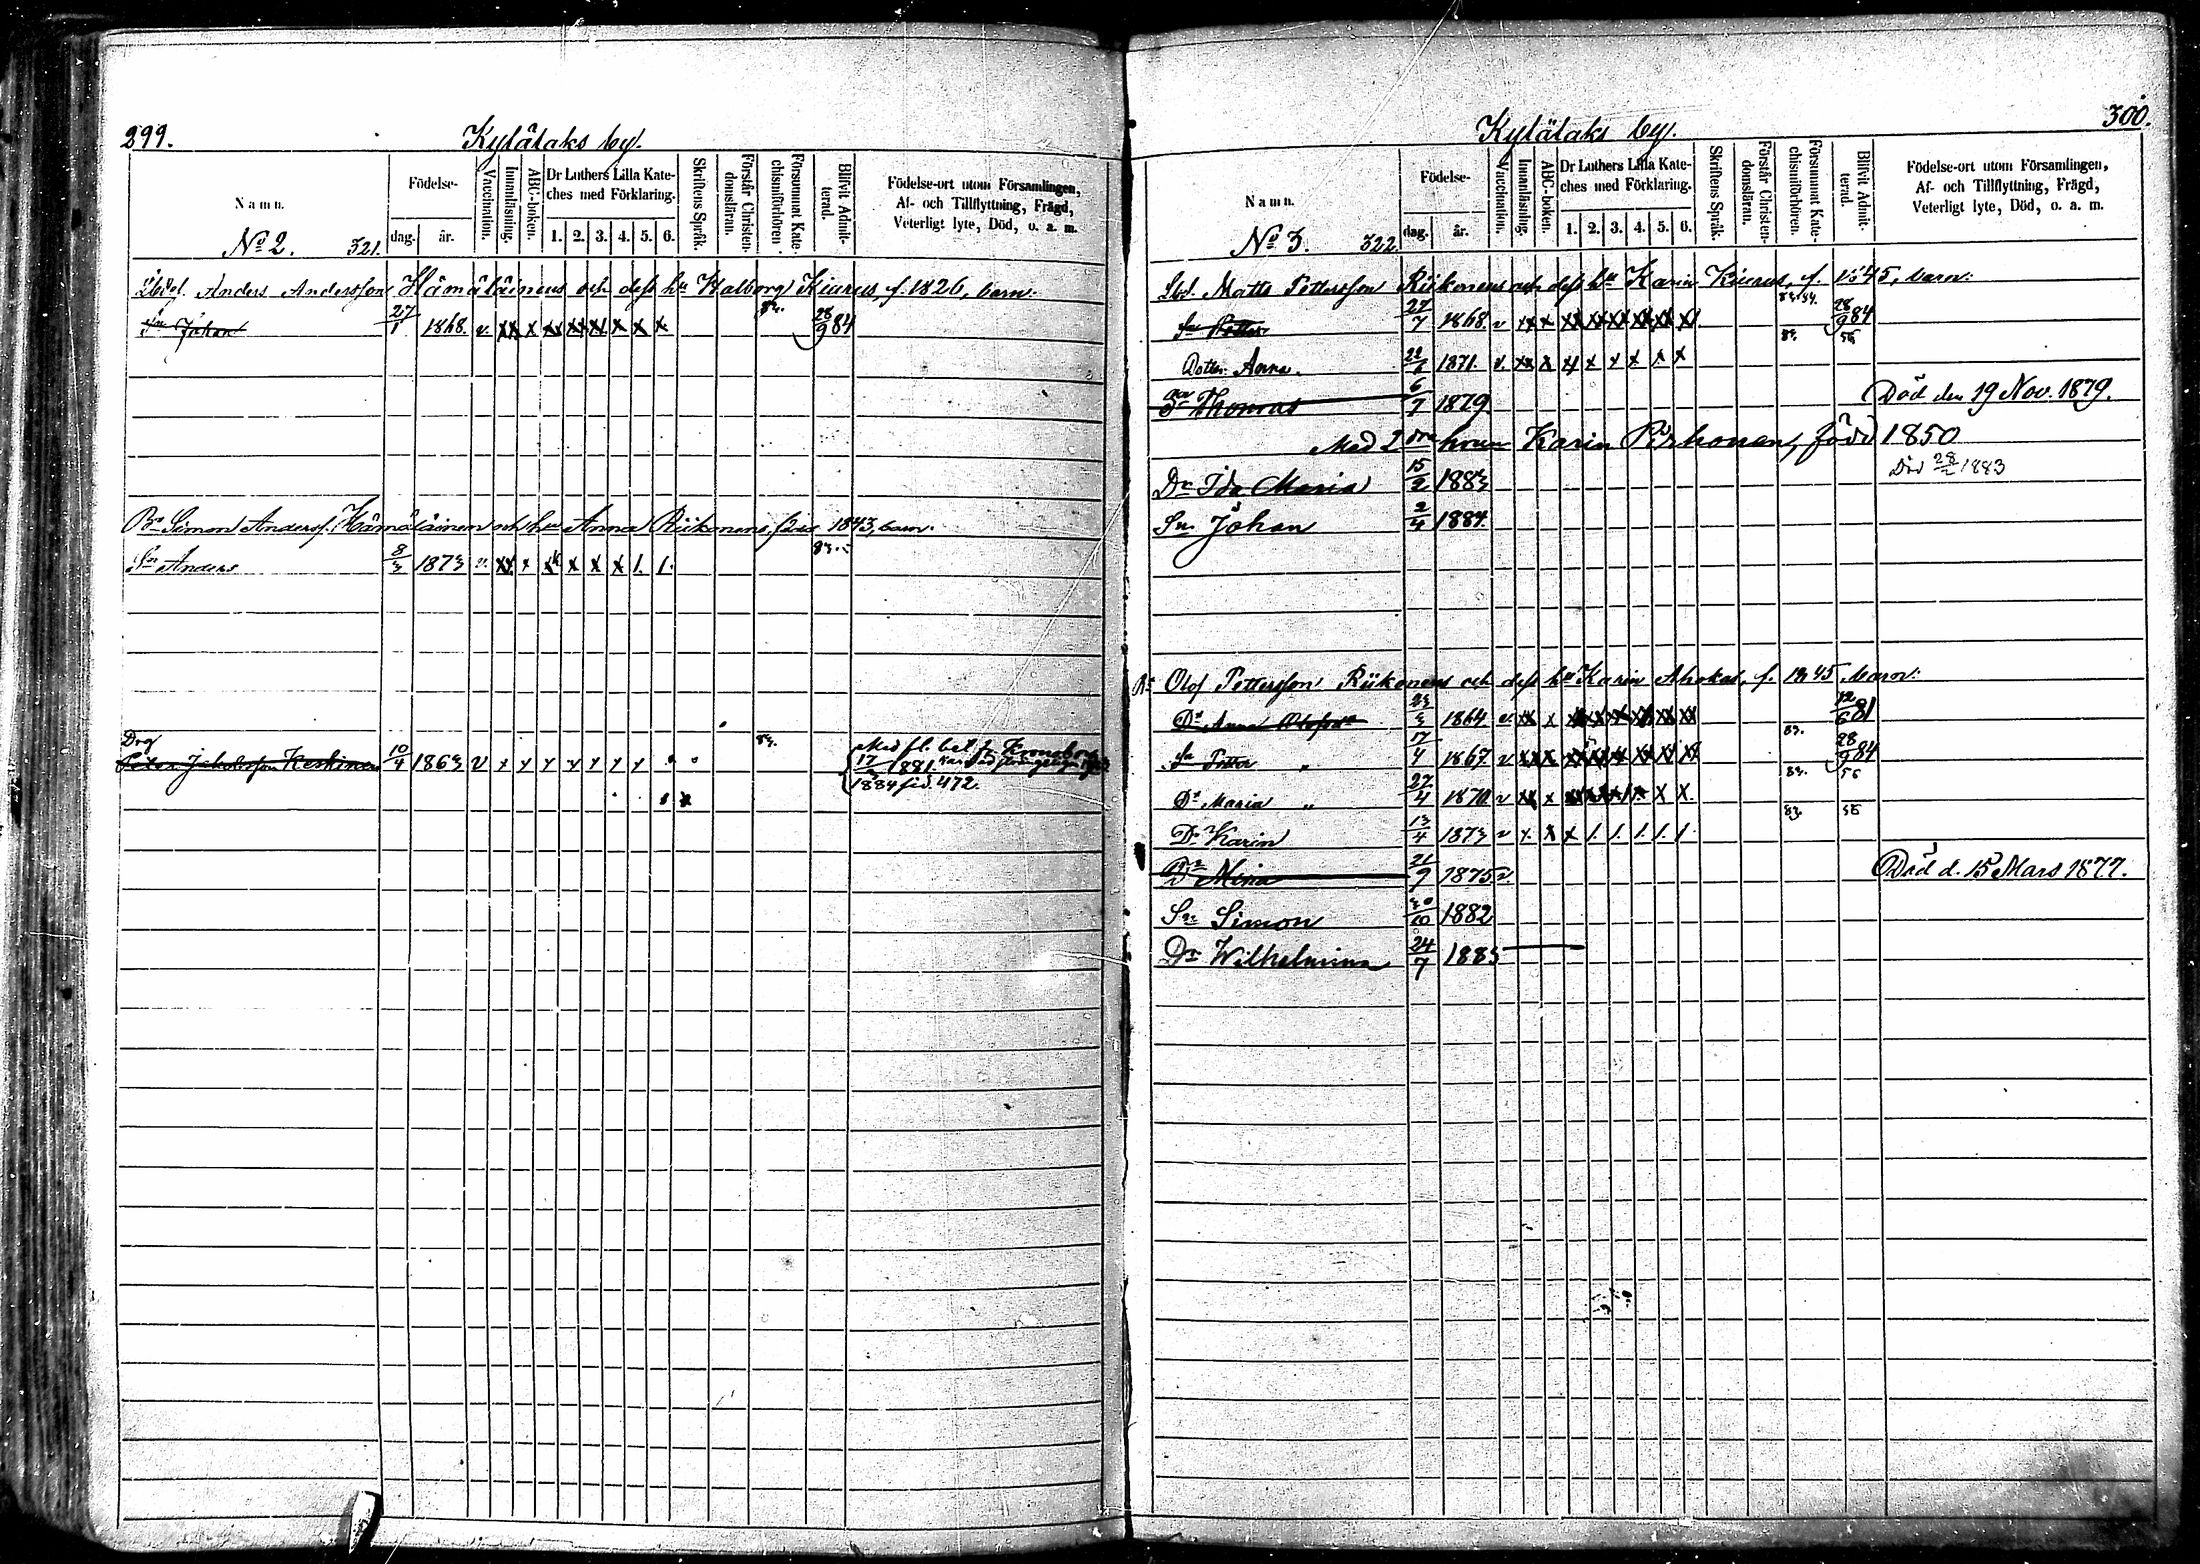 299.
Kylälaks by.
Namn.
Födelse-
dag.
år.
Vaccination.
Innanläsning.
ABC-boken.
Dr Luthers Lilla Kate-
ches med Förklaring.
1. 2. 3. 4. 5. 6.
Skriftens Språk.
Förstår Christen-
domsläran.
Försummat Kate-
chismiförhören
Blifvit Admit-
terad.
Födelse-ort utom Församlingen,
Af- och Tillflyttning, Frägd,
Veterligt lyte, Död, o. a. m.
No 2. 321.
Anders Andersson Hämäläinens och dess hu Walborg Kiurus, f. 1826, barn:
Sn Johan 27/1 1868. v. xx x xx xx x x x x 28/9 84
Br Simon Anderss. Hämäläinen och hu Anna Riikonens, född 1843, barn:
83.
Sn Anders 8/3 1873 v. xx x x x x x 1. 1.
Drg
Peter Jakobsson Keskinen 10/4 1863 v x x x x x x x 83. Med fl. bet. fr. Kronoborg
17/ 1881.
1884 sid. 472.
300.
Kylälaks by.
Namn.
Födelse-
dag.
år.
Vaccination.
Innanläsning.
ABC-boken.
Dr Luthers Lilla Kate-
ches med Förklaring.
1. 2. 3. 4. 5. 6.
Skriftens Språk.
Förstår Christen-
domsläran.
Försummat Kate-
chismiförhören.
Blifvit Admit-
terad.
Födelse-ort utom Församlingen,
Af- och Tillflyttning, Frägd,
Veterligt lyte, Död, o. a. m.
No 3. 322
Matts Pettersson Riikonens och dess hu Karin Kiurus, f. 1845, barn:
Sn Petter 27/7 1868. v xx x xx xx xx xx xx xx 83.84. 28/9 84
Dotter Anna. 22/6 1871. v. xx x x x x x x x 83. 56
Sn Thomas 6/7 1879 Död den 19 Nov. 1879.
Med 2 dra hrun Karin Pirhonen, född 1850
Dr Ida Maria 15/2 1883 Död 28/2 1883
Sn Johan 2/4 1884.
Br Olof Pettersson Riikonens och dess hu Karin Ahokas, f. 1845 barn:
Dr Anna Olofsdr 23/3 1864 v. xx x xx xx xx xx xx xx 12/6 81
Sn Petter " 17/4 1867 v xx xx 83. 28/9 84
Dr Maria " 27/4 1870 v xx x x x 83. 56
Dr Karin 13/4 1873 v x. x x 1. 1. 1. 1. 1. 83. 56
Dr Mina 21/9 1875 v. Död d. 15 Mars 1877.
Sn Simon 30/10 1882
Dr Wilhelmina 24/7 1885